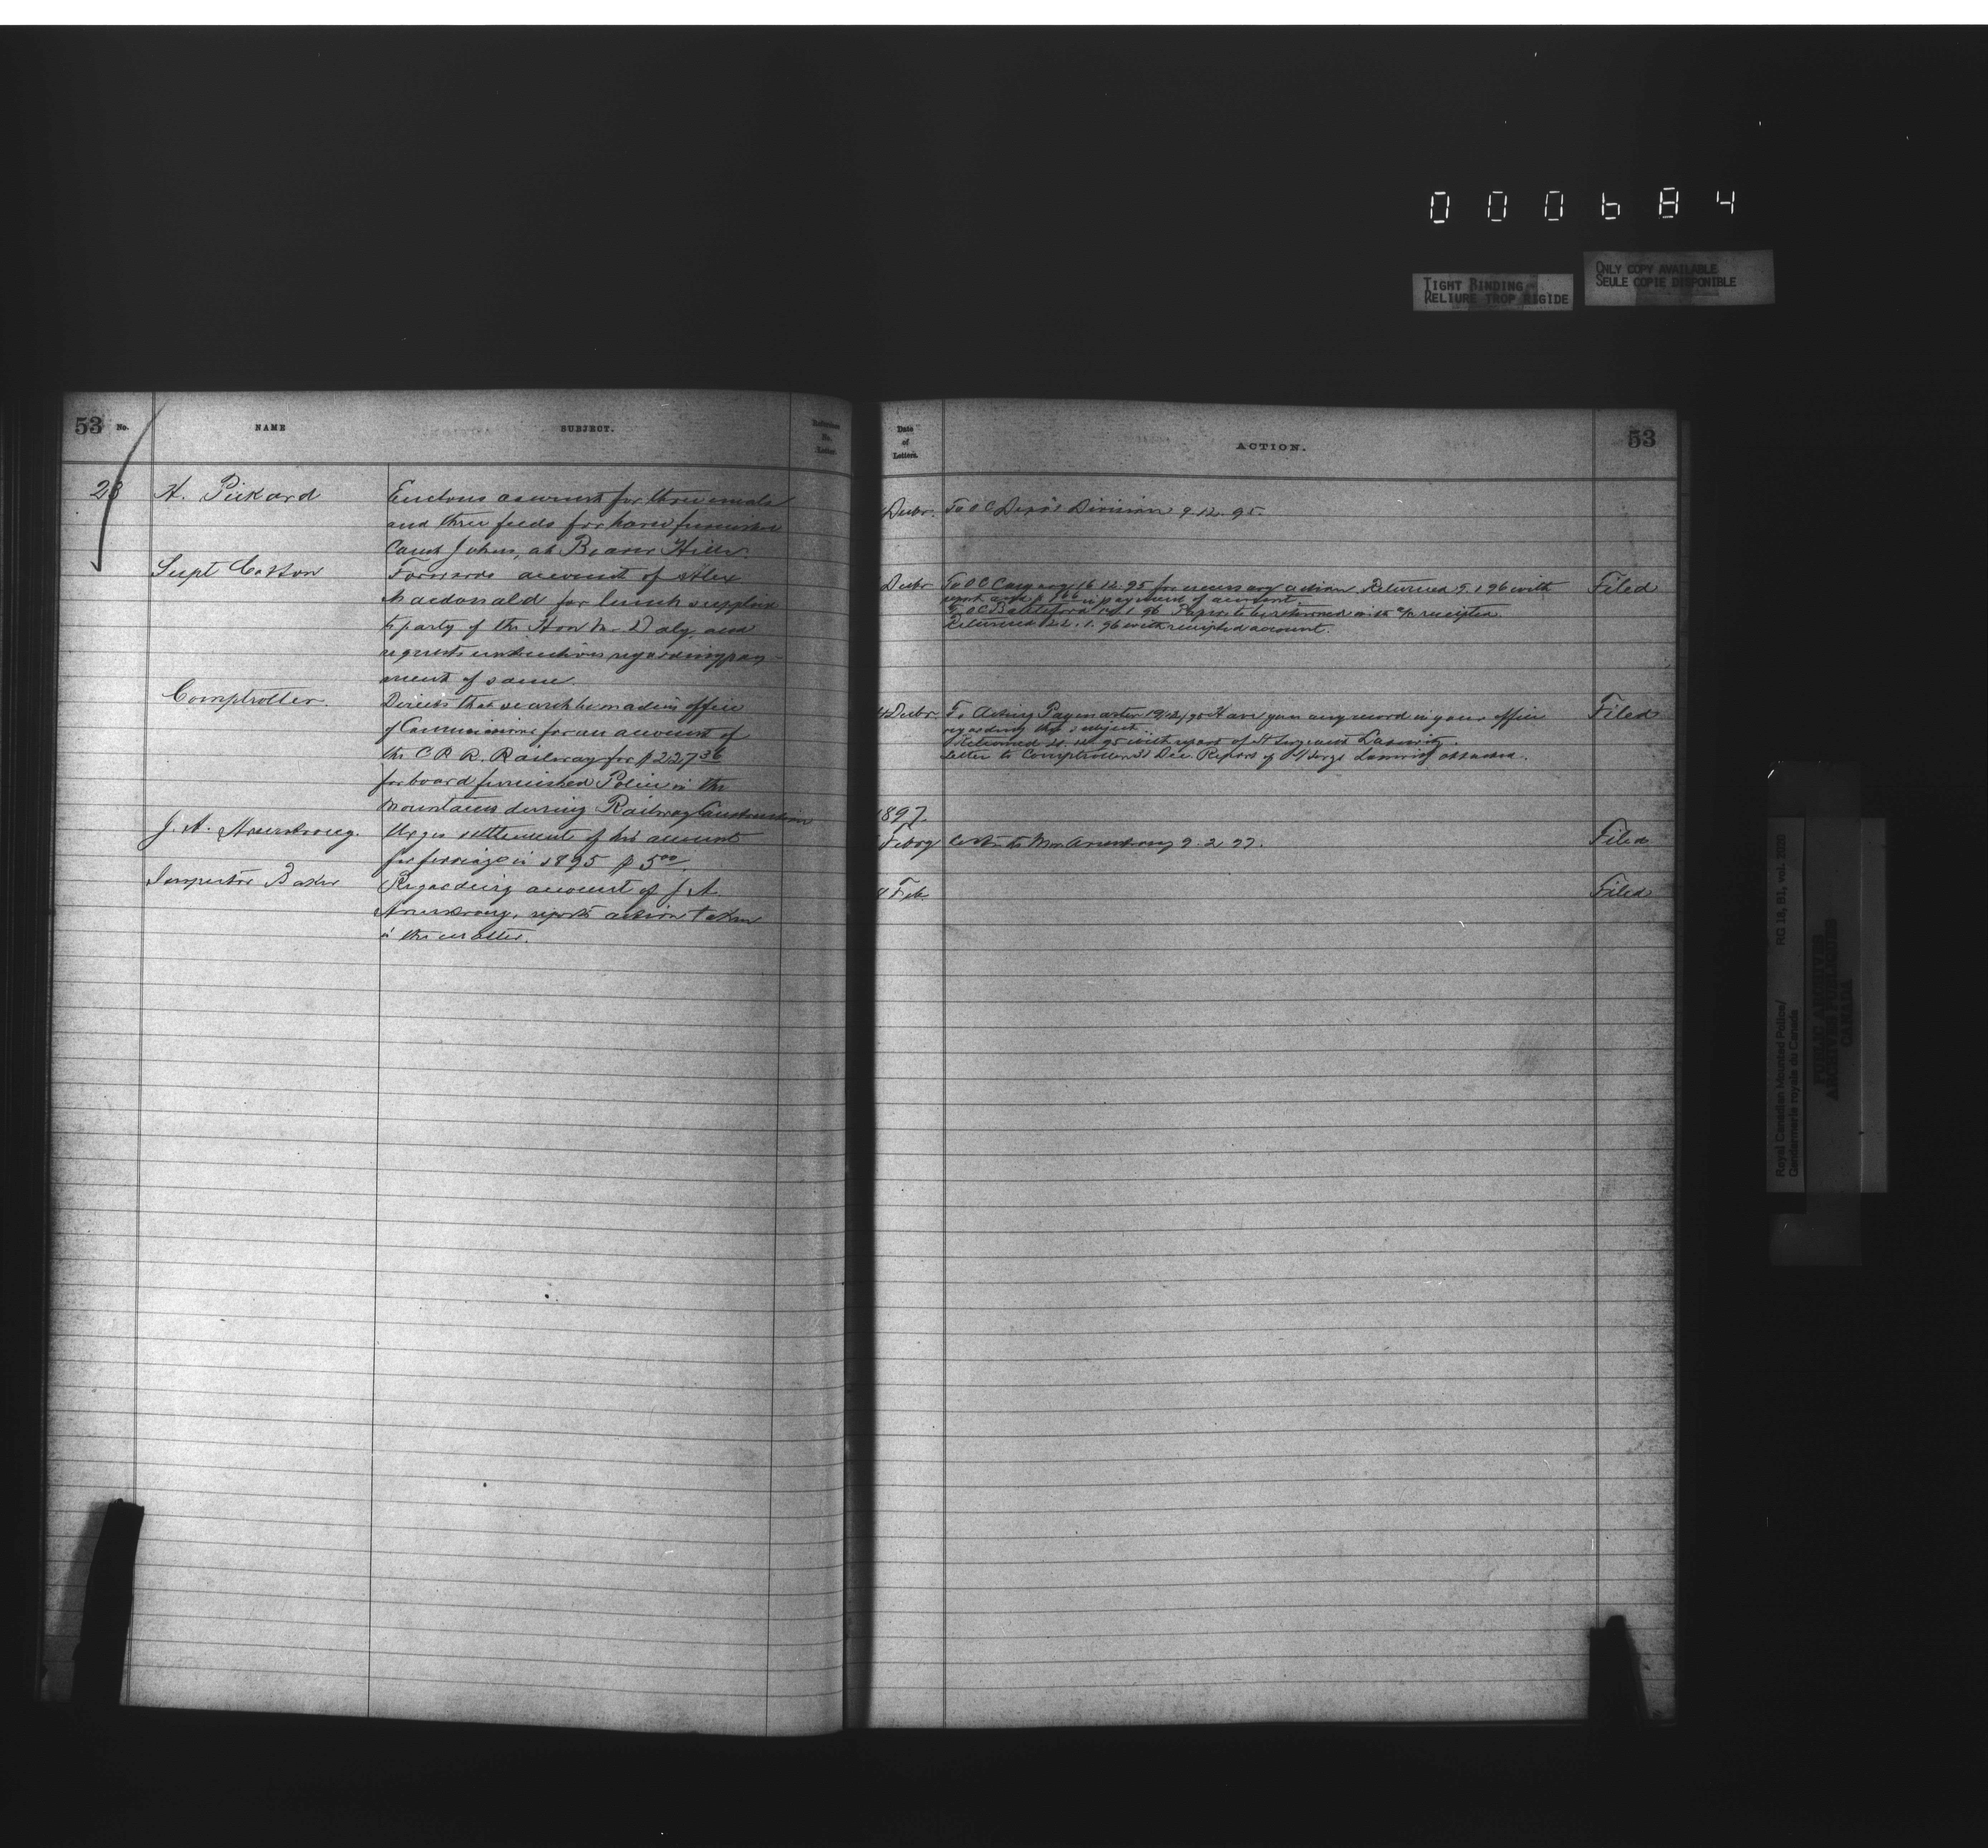 000684
TIGHT BINDING
RELIURE TROP RIGIDE
ONLY COPY AVAILABLE
SEULE COPIE DISPONIBLE
53 No. NAME SUBJECT.
28 H. Pickard Encloses account for three meals
and three feeds for horse furnished
Const Johns, at Beaver Hills.
Supt Cotton Forwards account of Alex
Macdonald for lunch supplied
to party of the Hon Mr. Daly and
requests instructions regarding pay-
ment of same.
Comptroller. Directs that search be made in office
of Commissioner for an account of
the C P R. Railway for $227 36
for board furnished Police in the
Mountains during Railway Construction
J. A. Armstrong. Urges settlement of his account
for ferriage in 1895 $5 00.
Inspector Baker Regarding account of J. A.
Armstrong, reports action taken
in the matter.
Date
of
Letters.
ACTION. 53
Decbr. To O C Depôt Division 9.12.95.
Decbr To O C Calgary 16.12.95 for necessary action Returned 9.1.96 with Filed
report and in payment of account
To O C Battleford 1.96 Papers to be returned with a/c receipted.
Returned 22.1.96 with receipted account.
Decbr. To Acting Paymaster 19/12/95 Have you any record in your office Filed
regarding this subject.
Returned 12.95 with report of St Sergeant
Letter to Comptroller 31 Dec. Report of S/Sergt attached.
1897.
Febry to Mr. Armstrong 9.2.97. Filed
Feb Filed
Royal Canadian Mounted Police/
Gendarmerie royale du Canada
RG 18, B1, vol. 2020
PUBLIC ARCHIVES
ARCHIVES PUBLIQUES
CANADA